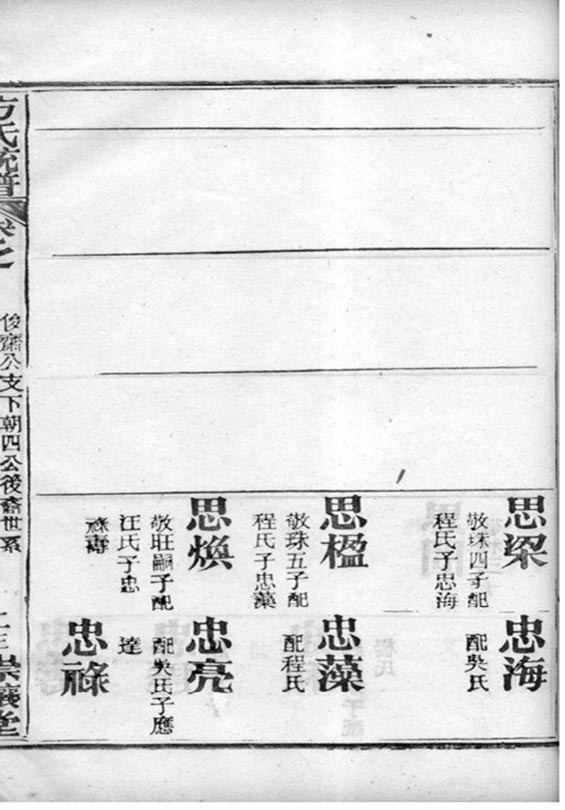 思梁
敬珠四子配
程氏子忠海
思楹
敬珠五子配
程氏子忠藻
思煥
敬旺嗣子配
汪氏子忠
祿壽
忠海
配吳氏
忠藻
配程氏
忠亮
配吳氏子應
達
忠祿
方氏統譜
卷之
俊齋公支下朝四公後裔世系
崇讓堂